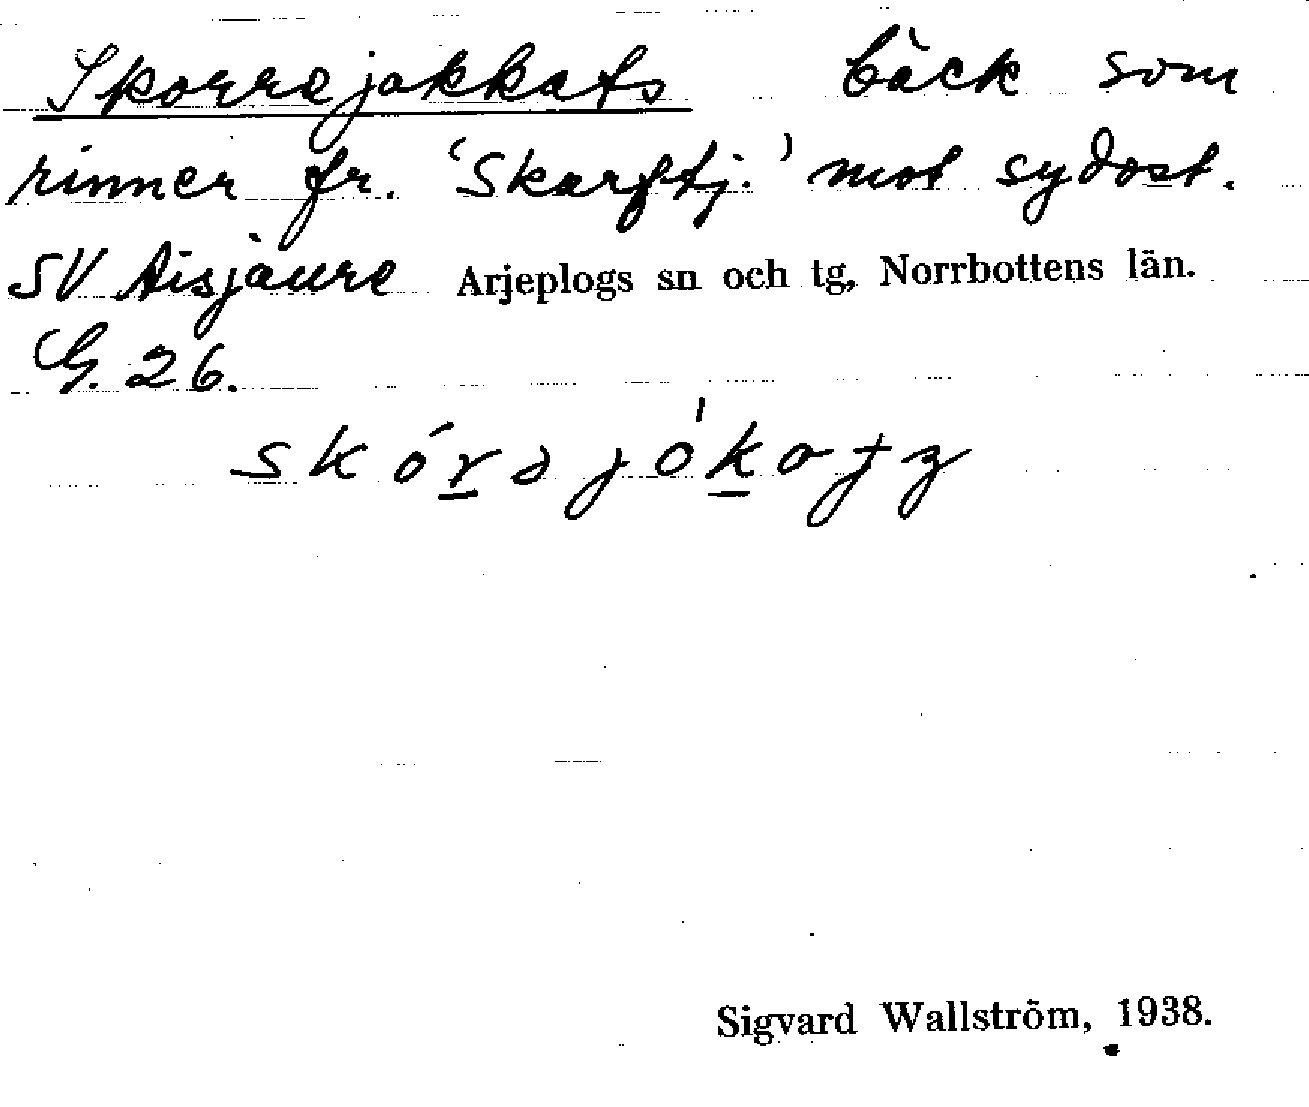 Skorrejakkats bäck som
rinner fr. 'Skarftj.' mot sydost.
SV Aisjaure Arjeplogs sn och tg, Norrbottens län.
G. 26.
Sigvard Wallström, 1938.